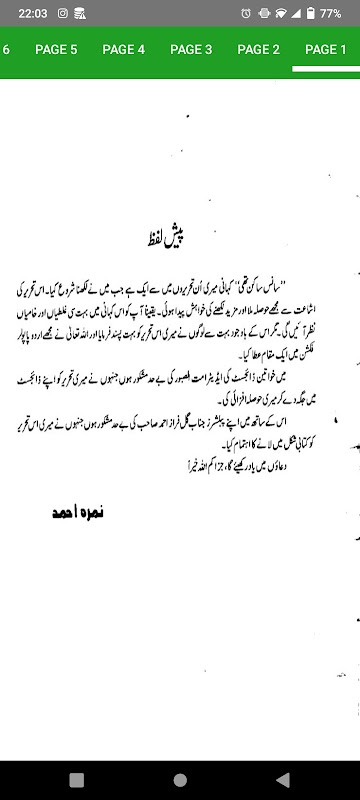 22:03
77%
6 PAGE 5 PAGE 4 PAGE 3 PAGE 2 PAGE 1
پیش لفظ
"سانس ساکن تھی" کہانی میری اُن تحریروں میں سے ایک ہے جب میں نے لکھنا شروع کیا۔ اس تحریر کی
اشاعت سے مجھے حوصلہ ملا اور مزید لکھنے کی خواہش پیدا ہوئی۔ یقیناً آپ کو اس کہانی میں بہت سی غلطیاں اور خامیاں
نظر آئیں گی۔ مگر اس کے باوجود بہت سے لوگوں نے میری اس تحریر کو بہت پسند فرمایا اور اللہ تعالیٰ نے مجھے اردو پاپولر
فکشن میں ایک مقام عطا کیا۔
میں خواتین ڈائجسٹ کی ایڈیٹر امت الصبور کی بے حد مشکور ہوں جنہوں نے میری تحریر کو اپنے ڈائجسٹ
میں جگہ دے کر میری حوصلہ افزائی کی۔
اس کے ساتھ میں اپنے پبلشرز جناب گل فراز احمد صاحب کی بے حد مشکور ہوں جنہوں نے میری اس تحریر
کو کتابی شکل میں لانے کا اہتمام کیا۔
دعاؤں میں یاد رکھیئے گا، جزاکم اللہ خیراً
نمرہ احمد